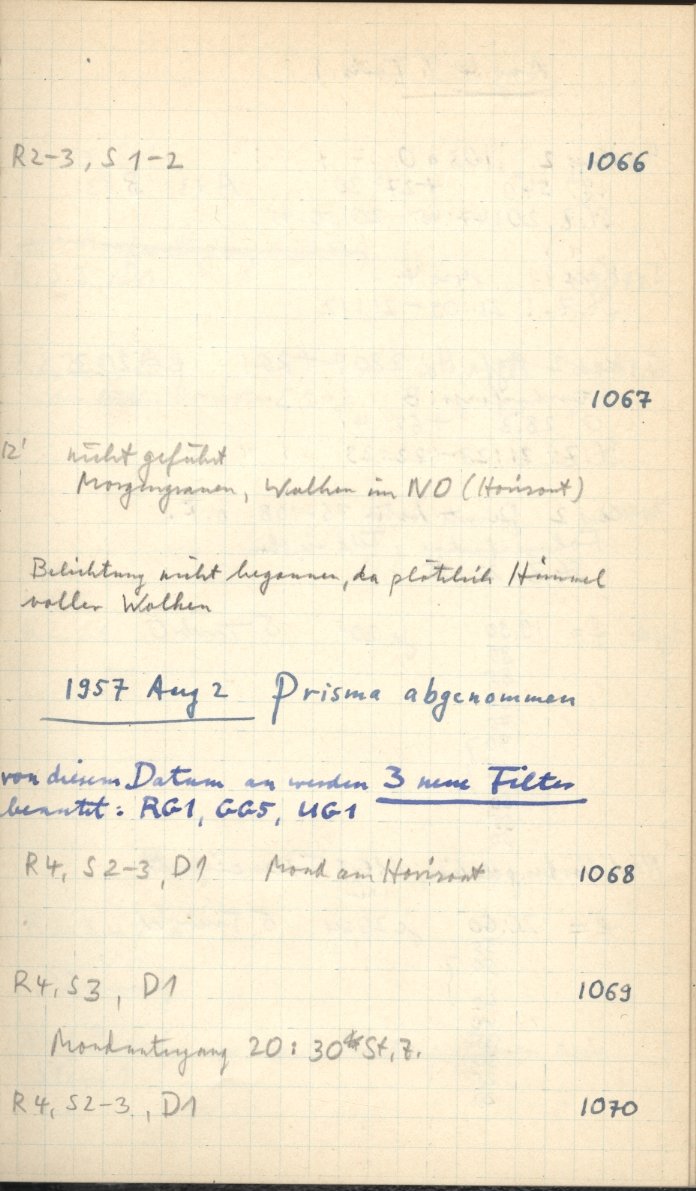 R2-3, S 1-2 1066
1067
12' nicht geführt
Morgengrauen, Wolken im NO (Horizont)
Belichtung nicht begonnen, da plötzlich Himmel
voller Wolken
1957 Aug 2 Prisma abgenommen
von diesem Datum an werden 3 neue Filter
benutzt: RG1, GG5, UG1
R4, S2-3, D1 Mond am Horizont 1068
R4, S3, D1 1069
Monduntergang 20:30 St.Z.
R4, S2-3, D1 1070